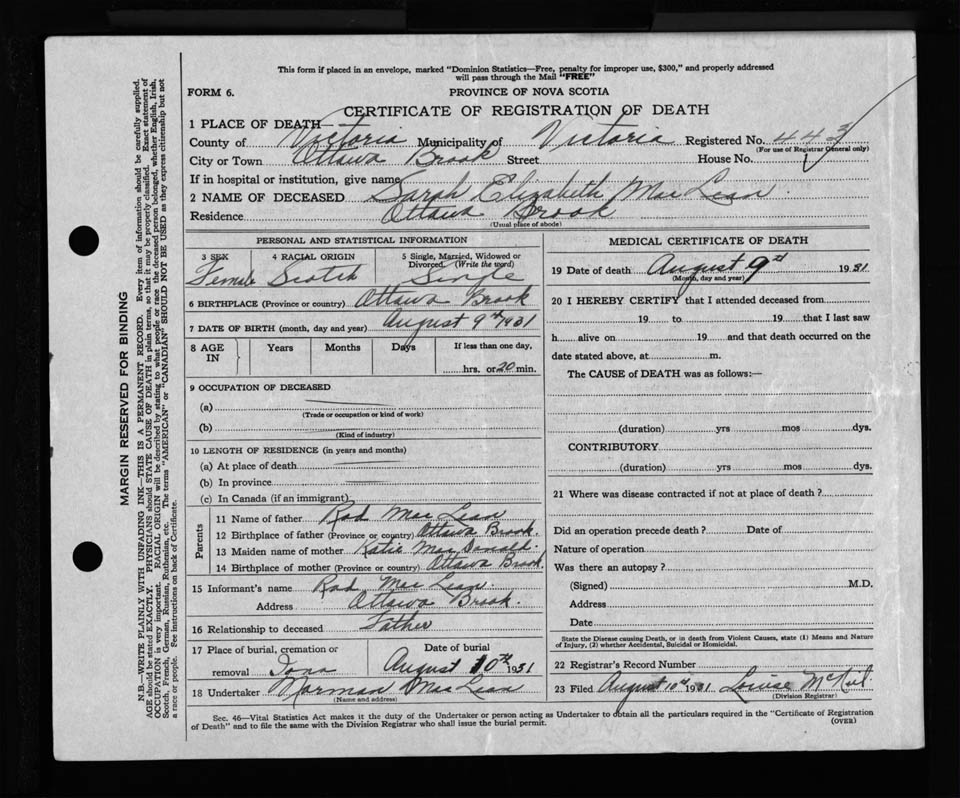 This form if placed in an envelope, marked "Dominion Statistics—Free, penalty for improper use, $300," and properly addressed
will pass through the Mail "FREE"
FORM 6.
PROVINCE OF NOVA SCOTIA
CERTIFICATE OF REGISTRATION OF DEATH
1 PLACE OF DEATH—
County of Victoria Municipality of Victoria Registered No. 443
(For use of Registrar General only)
City or Town Ottawa Brook Street House No.
If in hospital or institution, give name
2 NAME OF DECEASED Sarah Elizabeth MacLean
Residence Ottawa Brook
(Usual place of abode)
PERSONAL AND STATISTICAL INFORMATION
3 SEX 4 RACIAL ORIGIN 5 Single, Married, Widowed or
Divorced (Write the word)
Female Scotch Single
6 BIRTHPLACE (Province or country) Ottawa Brook
7 DATE OF BIRTH (month, day and year) August 9th 1931
8 AGE IN Years Months Days If less than one day,
hrs. or 20 min.
9 OCCUPATION OF DECEASED
(a)
(Trade or occupation or kind of work)
(b)
(Kind of industry)
10 LENGTH OF RESIDENCE (in years and months)
(a) At place of death
(b) In province
(c) In Canada (if an immigrant)
Parents
11 Name of father Rod MacLean
12 Birthplace of father (Province or country) Ottawa Brook
13 Maiden name of mother Katie MacDonald
14 Birthplace of mother (Province or country) Ottawa Brook
15 Informant's name Rod MacLean
Address Ottawa Brook
16 Relationship to deceased Father
17 Place of burial, cremation or Date of burial
removal Iona August 10th 1931
18 Undertaker Norman MacLean
(Name and address)
MEDICAL CERTIFICATE OF DEATH
19 Date of death August 9th 1931
(Month, day and year)
20 I HEREBY CERTIFY that I attended deceased from
19 to 19 that I last saw
h alive on 19 and that death occurred on the
date stated above, at m.
The CAUSE of DEATH was as follows:—
(duration) yrs mos dys.
CONTRIBUTORY
(duration) yrs mos dys.
21 Where was disease contracted if not at place of death?
Did an operation precede death? Date of
Nature of operation
Was there an autopsy?
(Signed) M.D.
Address
Date
State the Disease causing Death, or in death from Violent Causes, state (1) Means and Nature
of Injury, (2) whether Accidental, Suicidal or Homicidal.
22 Registrar's Record Number
23 Filed August 10th 1931 Louise McNeil
(Division Registrar)
Sec. 46—Vital Statistics Act makes it the duty of the Undertaker or person acting as Undertaker to obtain all the particulars required in the "Certificate of Registration
of Death" and to file the same with the Division Registrar who shall issue the burial permit. (OVER)
MARGIN RESERVED FOR BINDING
N.B.—WRITE PLAINLY WITH UNFADING INK—THIS IS A PERMANENT RECORD. Every item of information should be carefully supplied.
AGE should be stated EXACTLY. PHYSICIANS should STATE CAUSE OF DEATH in plain terms, so that it may be properly classified. Exact statement of
OCCUPATION is very important. RACIAL ORIGIN will be described by stating to what people or race the deceased person belonged, whether English, Irish,
Scotch, French, German, Russian, Ruthenian, etc. The terms "AMERICAN" or "CANADIAN" SHOULD NOT BE USED as they express citizenship but not
a race or people. See instructions on back of Certificate.